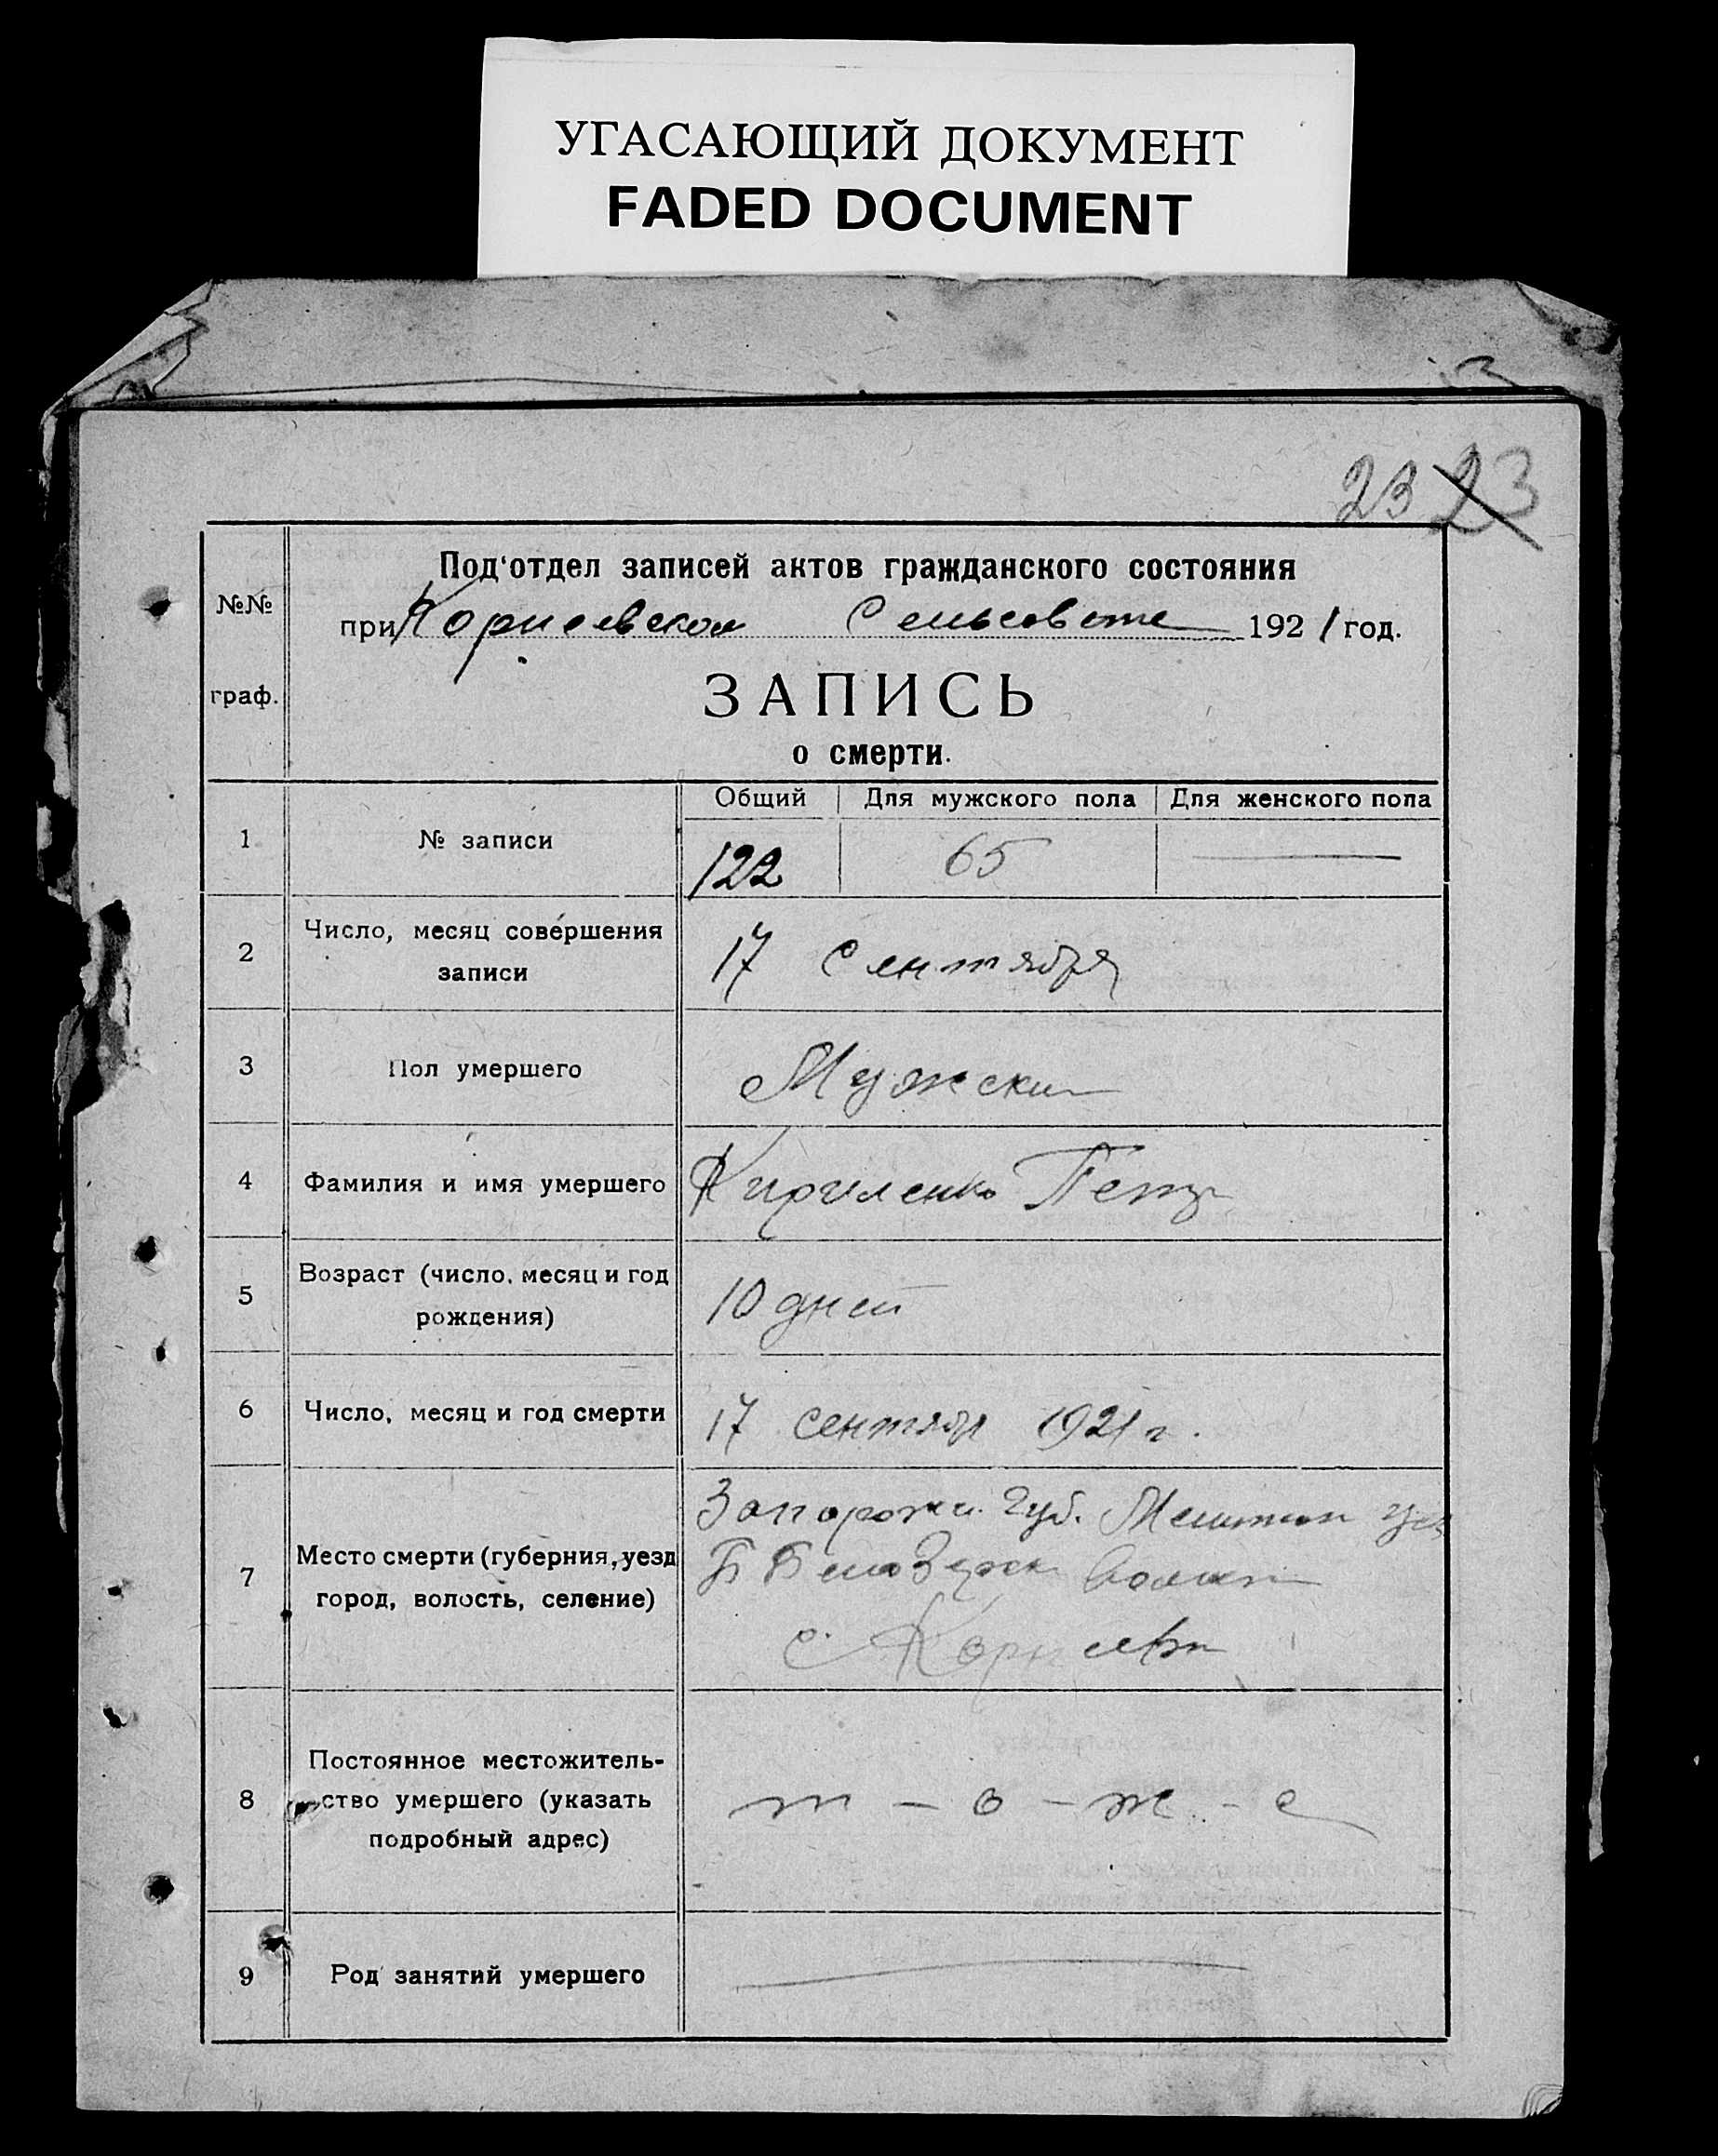 УГАСАЮЩИЙ ДОКУМЕНТ
FADED DOCUMENT
23 23
№№ граф.
Под'отдел записей актов гражданского состояния
при Корнеевском Сельсовете 1921 год.
ЗАПИСЬ
о смерти.
Общий Для мужского пола Для женского пола
1 № записи 122 65
2 Число, месяц совершения
записи
17 Сентября
3 Пол умершего Мужской
4 Фамилия и имя умершего Кириленко Петр
5 Возраст (число, месяц и год
рождения)
10 дней
6 Число, месяц и год смерти 17 сентября 1921 г.
7 Место смерти (губерния, уезд
город, волость, селение)
Запорожск. Губ. уез
Б
с.
8 Постоянное местожитель-
ство умершего (указать
подробный адрес)
т - о - ж - е
9 Род занятий умершего